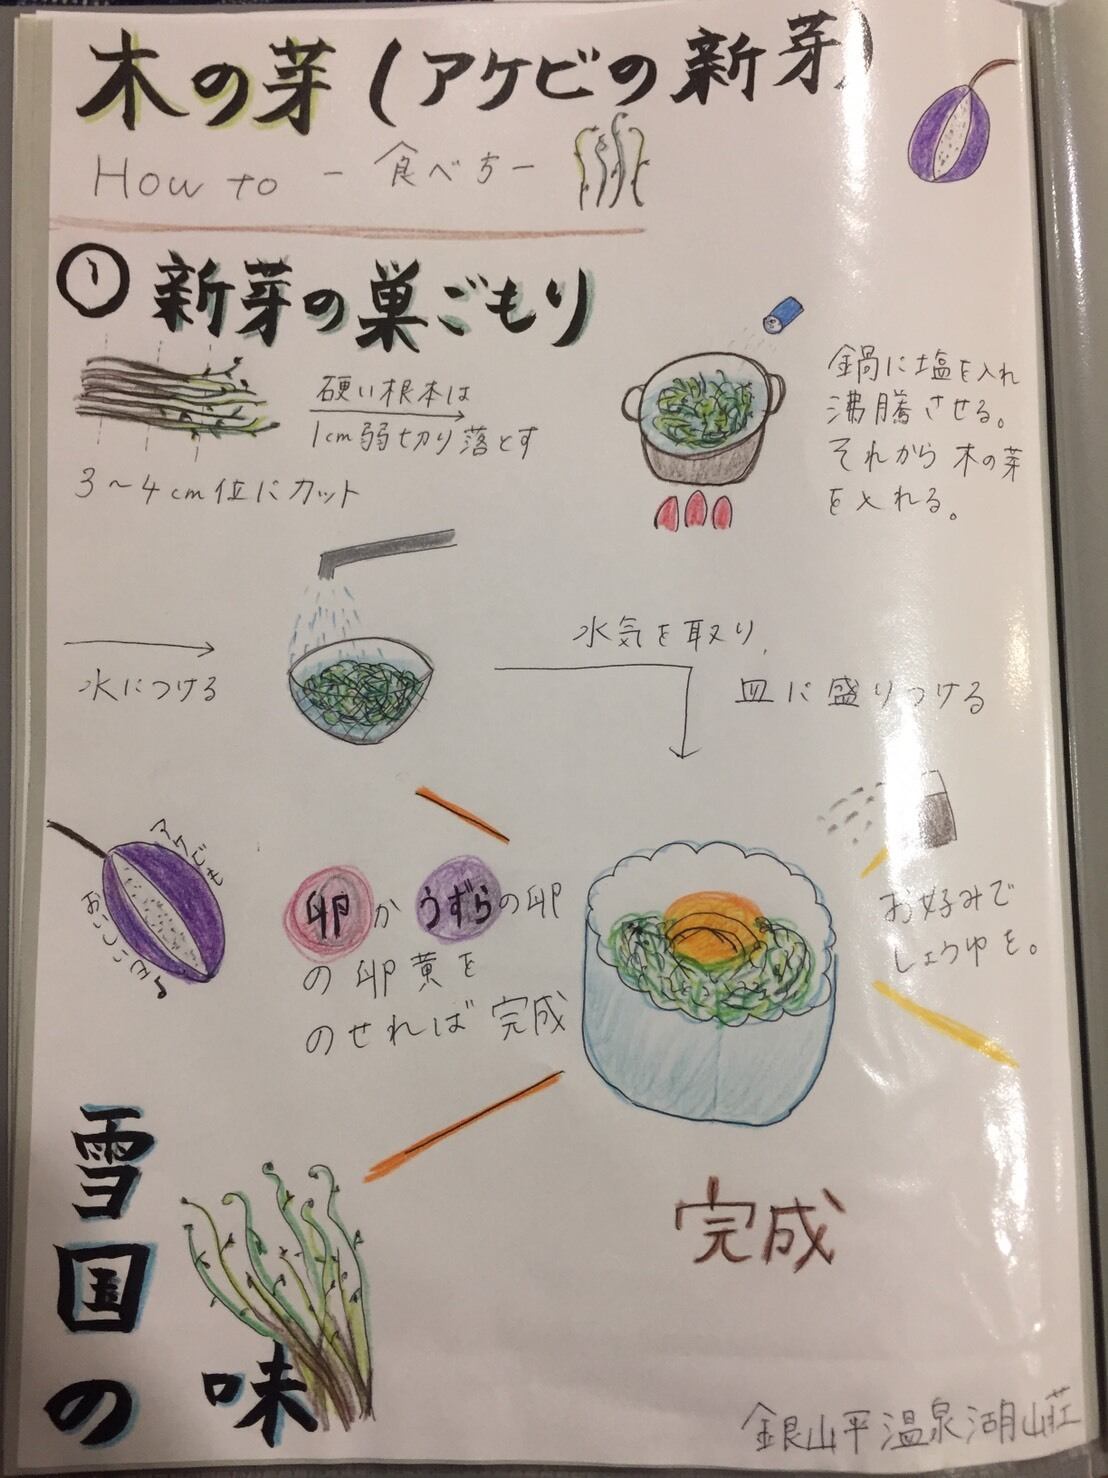 木の芽(アケビの新芽)
How to - 食べち-
① 新芽の巣ごもり
硬い根本は
1cm弱切り落とす
3〜4cm位にカット
鍋に塩を入れ
沸騰させる。
それから木の芽
を入れる。
水につける
水気を取り、
皿に盛りつける
アケビも
おいしいよ
卵かうずらの卵
の卵黄を
のせれば完成
お好みで
しょうゆを。
完成
雪国の味
銀山平温泉湖山荘